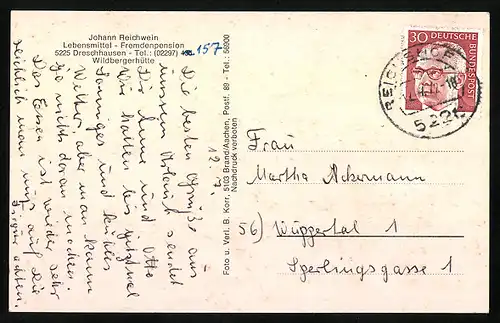 Johann Reichwein
Lebensmittel - Fremdenpension
5225 Dreschhausen - Tel.: (02297) 157
Wildbergerhütte
12. 7.
Die besten Grüße aus
unserem Urlaub sendet
Dir Lene und Otto
Wir hatten bis jetzt mal
sonniges und kühles
Wetter, aber man kann
ja nichts daran machen.
Das Essen ist wieder sehr
reichlich man muß auf die
Figur achten.
Foto u. Verl. B. Korr, 5103 Brand/Aachen, Postf. 89 - Tel.: 56900
Nachdruck verboten
30 DEUTSCHE BUNDESPOST
5226
Frau
Martha Ackermann
56) Wuppertal 1
Sperlingsgasse 1